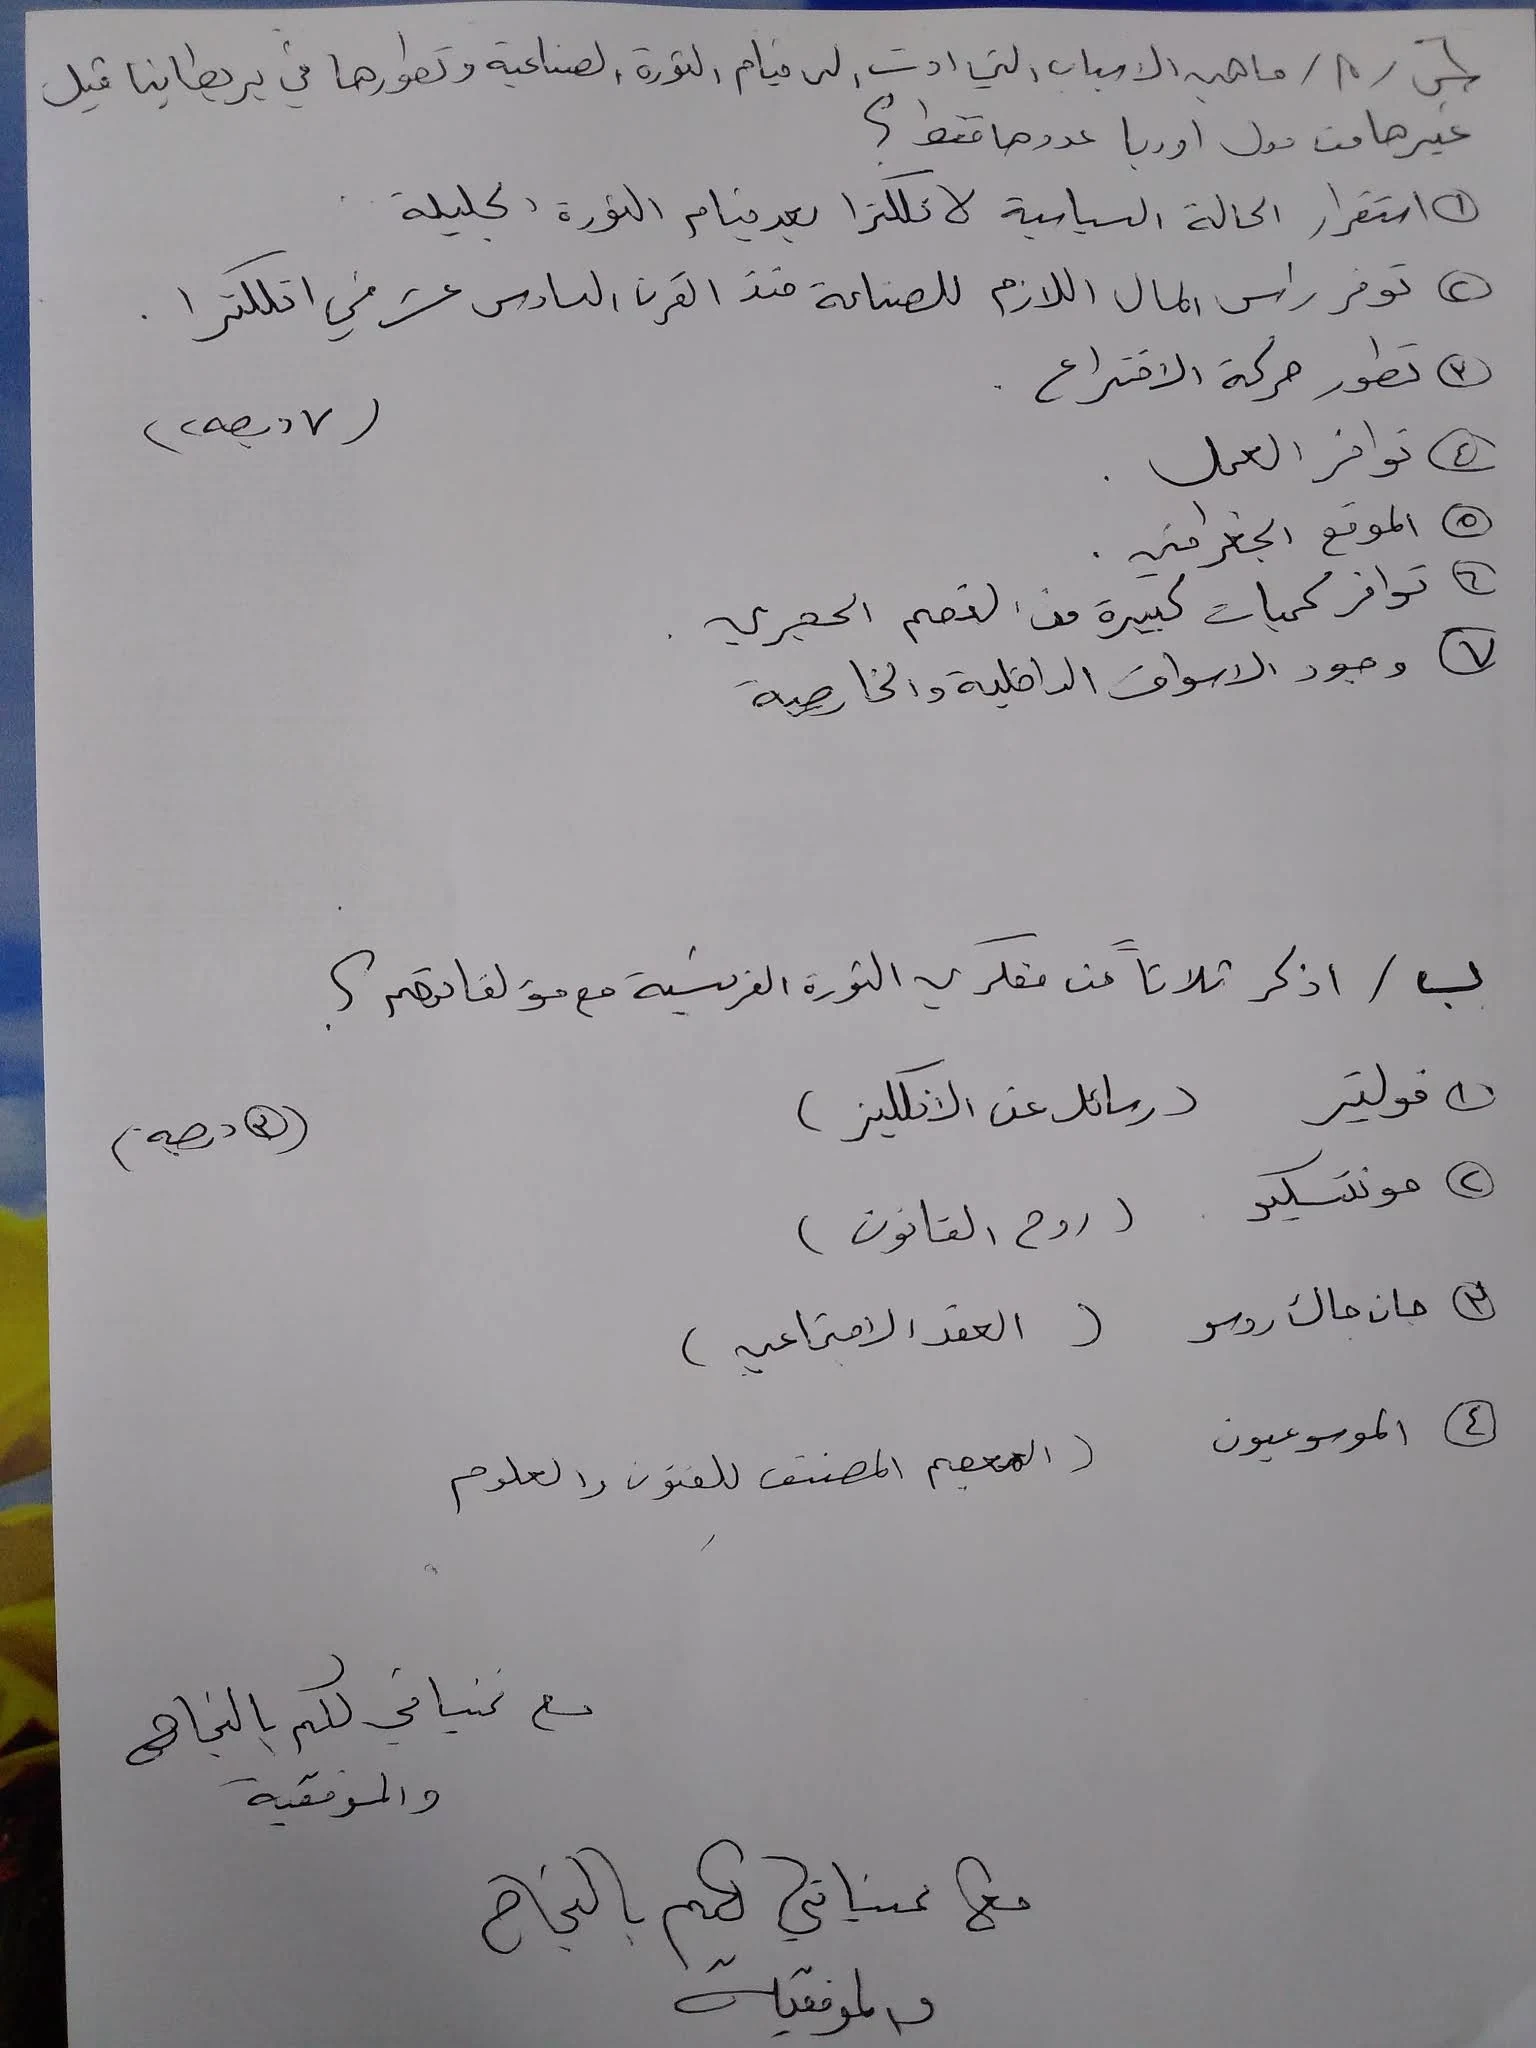 س / ٨ / ماهي الاسباب التي ادت الى قيام الثورة الصناعية وتطورها في بريطانيا قبل
غيرها من دول اوربا عددها فقط ؟
① استقرار الحالة السياسية لانكلترا بعد قيام الثورة الجليلة
② توفر راس المال اللازم للصناعة منذ القرن السادس عشر في انكلترا .
③ تطور حركة الاختراع .
(٧ درجة)
④ توافر العمل .
⑤ الموقع الجغرافي .
⑥ توافر كميات كبيرة من الفحم الحجري .
⑦ وجود الاسواق الداخلية والخارجية
ب / اذكر ثلاثاً من مفكري الثورة الفرنسية مع مؤلفاتهم ؟
① فولتير (رسائل عن الانكليز)
(٣ درجة)
② مونتسكيو (روح القانون)
③ جان جاك روسو (العقد الاجتماعي)
④ الموسوعيون (المعجم المصنف للفنون والعلوم
مع تمنياتي لكم بالنجاح
والموفقية
مع تمنياتي لكم بالنجاح
والموفقية